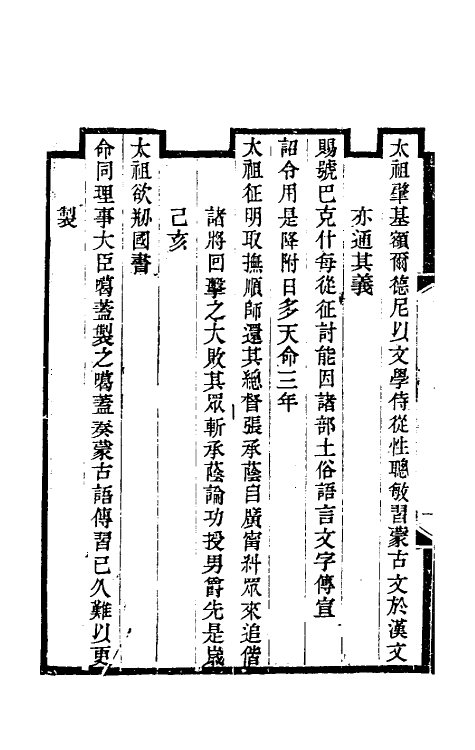 太祖肇基額爾德尼以文學侍從性聰敏習蒙古文於漢文
亦通其義
賜號巴克什每從征討能因諸部土俗語言文字傳宣
詔令用是降附日多天命三年
太祖征明取撫順師還其總督張承蔭自廣甯糾眾來追偕
諸將回擊之大敗其眾斬承蔭論功授男爵先是歲
己亥
太祖欲刱國書
命同理事大臣噶蓋製之噶蓋奏蒙古語傳習已久難以更
製